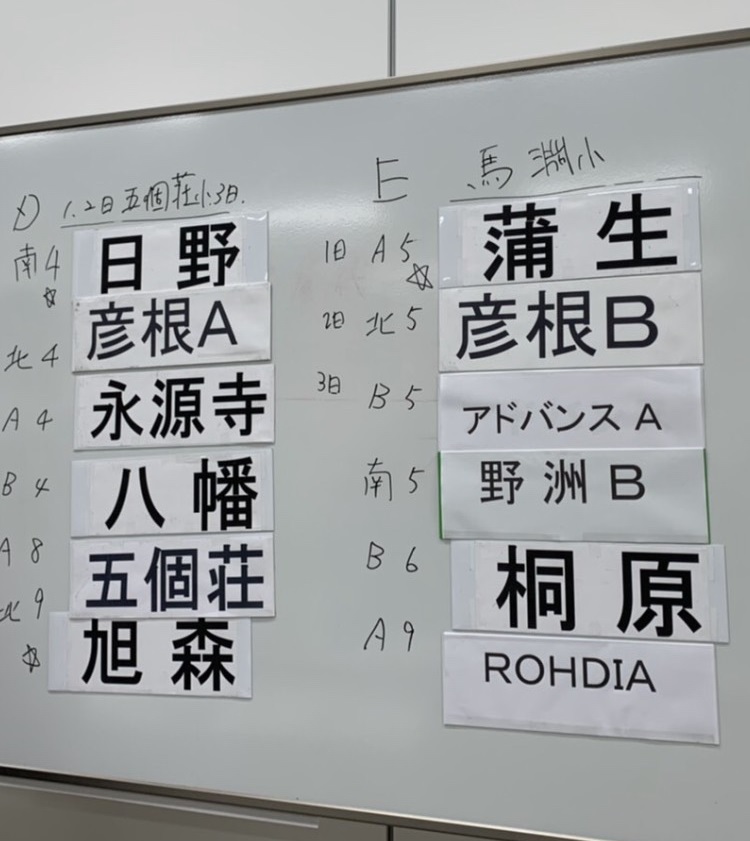 D 1.2日五個荘小3日.
南4 日野
☆
北4 彦根A
A4 永源寺
B4 八幡
A8 五個荘
北9 旭森
☆
E 馬淵小
1日 A5 蒲生
☆
2日 北5 彦根B
3日 B5 アドバンス A
南5 野洲 B
B6 桐原
A9 ROHDIA